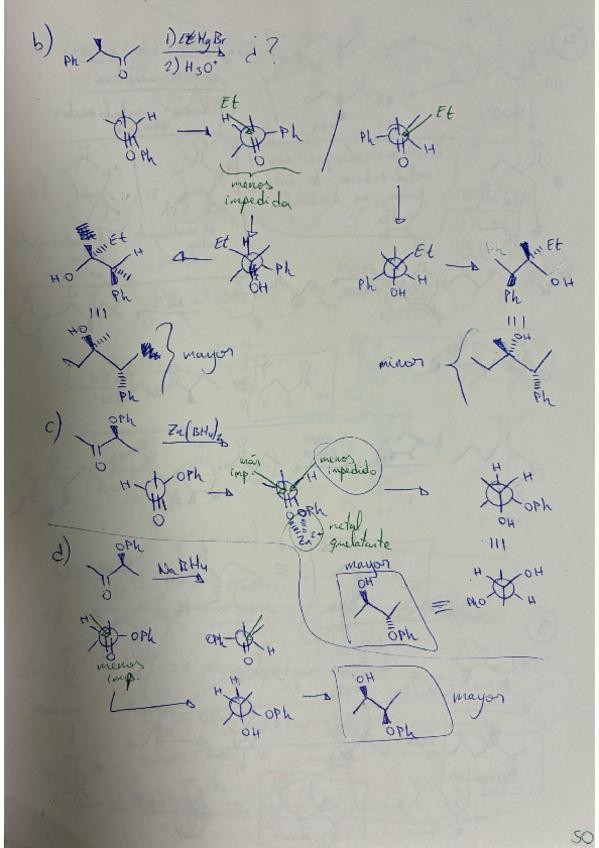 b) Ph O 1) EtMgBr ¿?
2) H3O+
H O Ph
Et H Ph O
Ph Et H O
menos
impedida
Et H Ph OH
Et H Ph OH
HO Et H Ph
Ph Et OH Ph
HO Ph
mayor
minor
OH Ph
c) OPh O Zn(BH4)2
H OPh O
más
imp.
menos
impedido
H OPh O Zn2+
metal
quelatante
H H OPh OH
d) OPh O NaBH4
mayor
OH OPh
H OH PhO H
H OPh O
OPh H O
menos
imp.
H H OPh OH
OH OPh
mayor
50